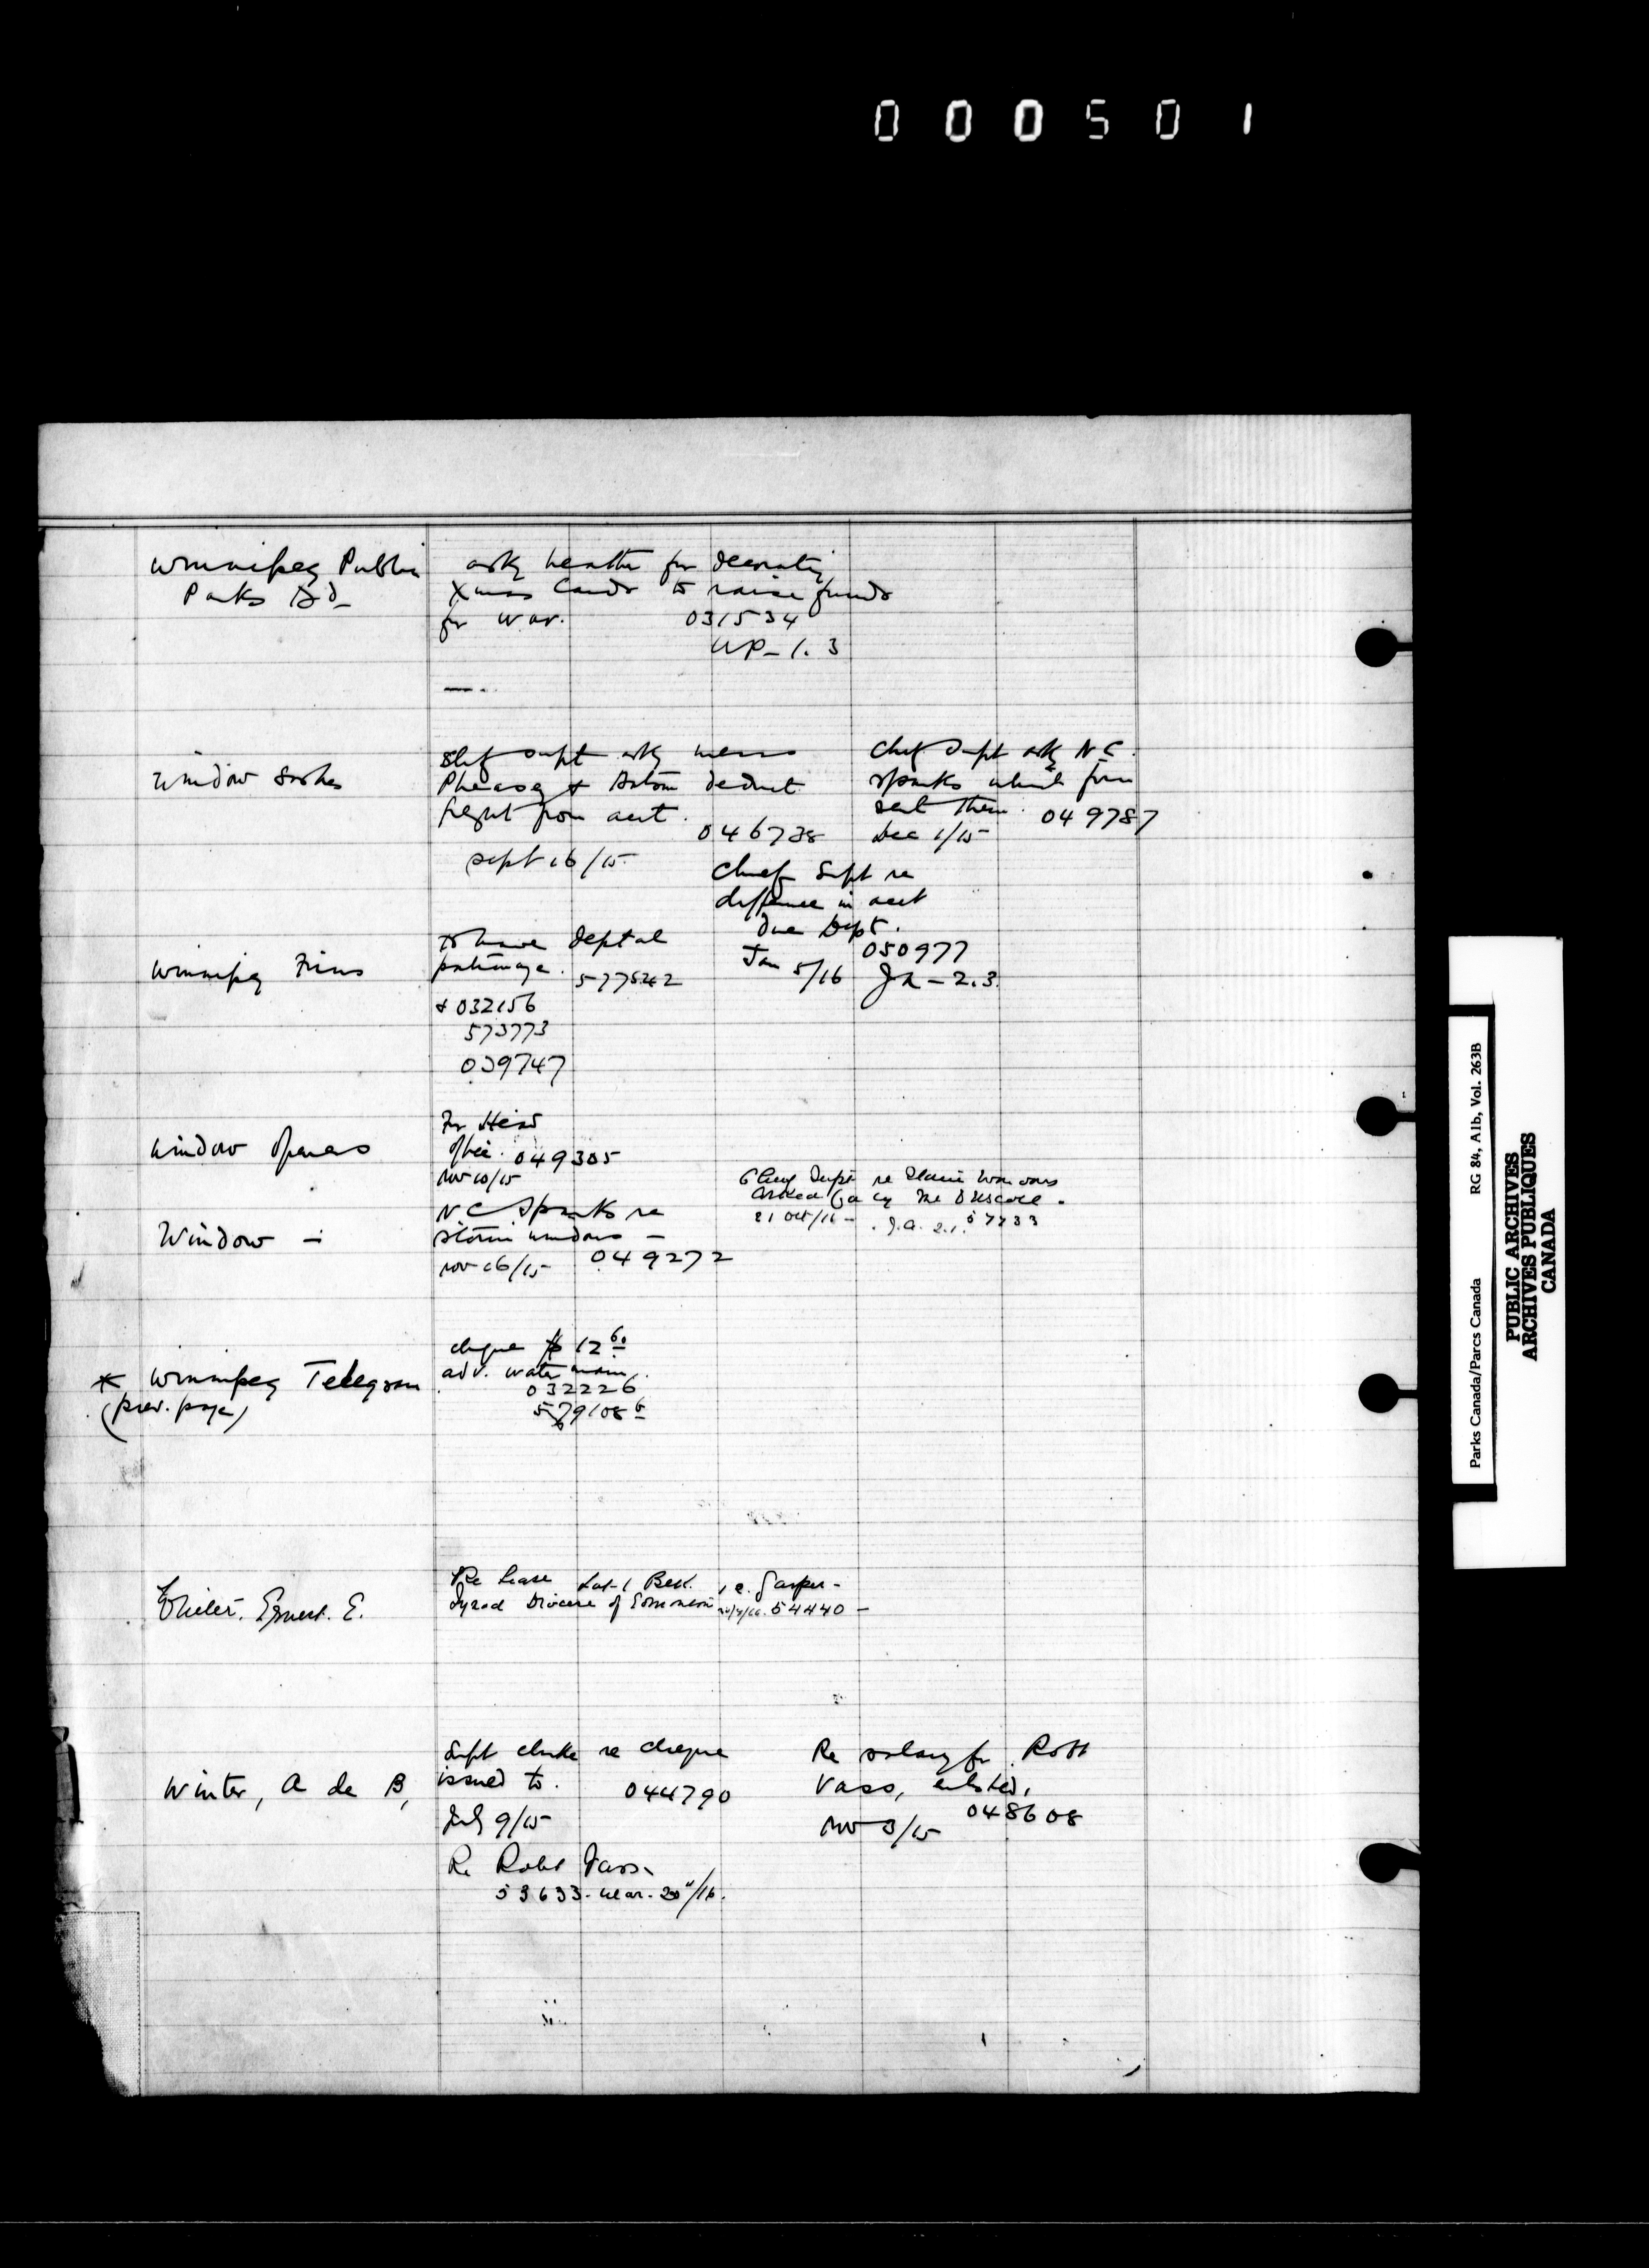 000501
Winnipeg Public
Parks Bd
ask heather for decorating
Xmas Cards to raise funds
for war. 031534
WP-1.3
Window Sashes
Supt ask
& deduct
freight from acct.
046738
Sept 16/15
Chief Supt ask N.C.
Sparks which firm
sent them 049787
Dec 1/15
Chief Supt re
difference in acct
due Dept.
050977
Jan 5/16 JA-2.3.
Winnipeg Firms
to have deptal
patronage. 577542
& 032156
573773
039747
Window Openers
For Head
Office. 049305
Nov 10/15
Window -
N.C. Sparks re
storm windows -
Nov 16/15 049272
Supt re
21 Oct/16 - J.A. 2.1. 57233
* Winnipeg Telegram
(prev. page)
cheque $12 60
adv. water main.
032226
Ernest. E.
Re Lease Lot-1 Jasper-
Diocese of Edmonton 54440 -
Winter, A de B,
Supt Clarke re cheque
issued to. 044790
July 9/15
Re Robt Vass.
53633. Mar. 20"/16.
Re salary for Robt
Vass, enlisted.
048608
Nov 3/15
Parks Canada/Parcs Canada RG 84, A1b, Vol. 263B
PUBLIC ARCHIVES
ARCHIVES PUBLIQUES
CANADA